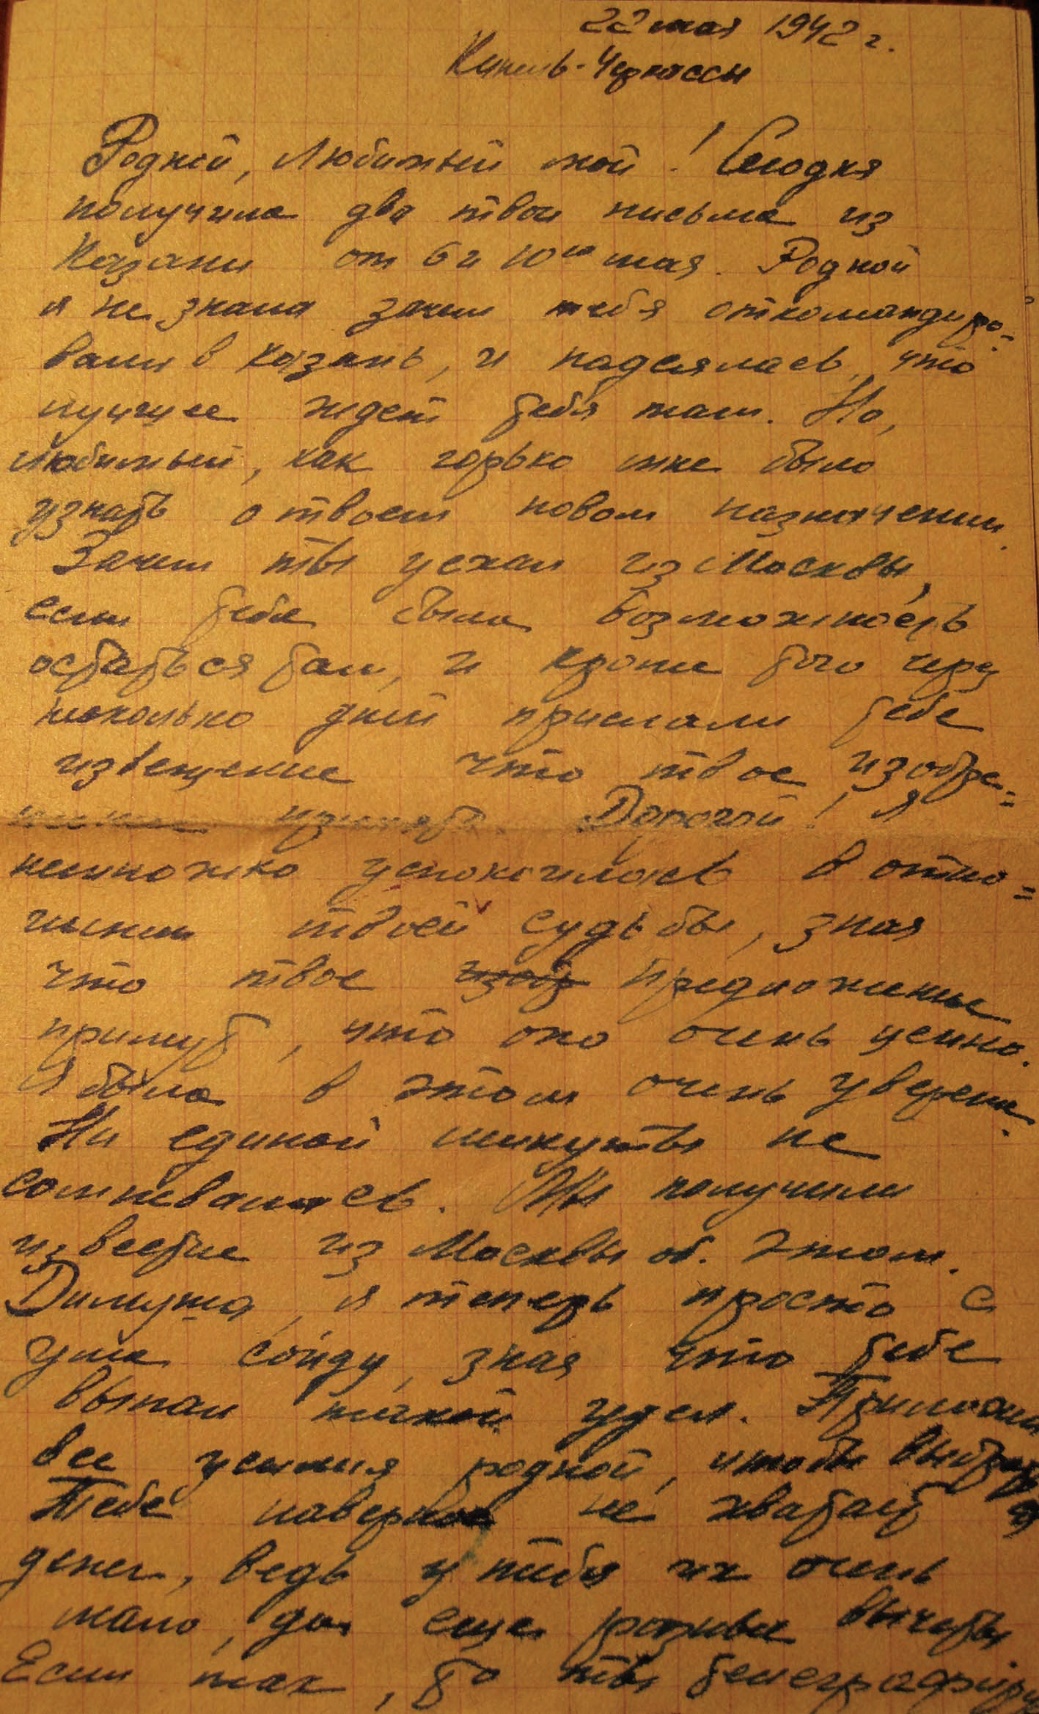 22 мая 1942 г.
Кинель-Черкассы
Родной, любимый мой! Сегодня
получила два твои письма из
Казани от 6 и 10го мая. Родной
я не знала зачем тебя откомандиро-
вали в Казань, и надеялась, что
лучшее ждет тебя там. Но,
любимый, как горько мне было
узнать о твоем новом назначении.
Зачем ты уехал из Москвы,
если тебе была возможность
остаться там, и кроме того через
несколько дней прислали тебе
извещение что твое изобре-
Дорогой! Я
немножко успокоилась в отно=
шении твоей судьбы, зная
что твое изоб предложение
примут, что оно очень ценно.
Я была в этом очень уверена.
Ни единой минуты не
сомневалась. Мы получили
известие из Москвы об этом.
Димуша, я теперь просто с
ума сойду, зная что тебе
выпал такой удел. Приложи
все усилия родной, чтобы
Тебе наверное не хватает
денег, ведь у тебя их очень
мало, да еще разные вычеты
Если так, то ты телеграфируй